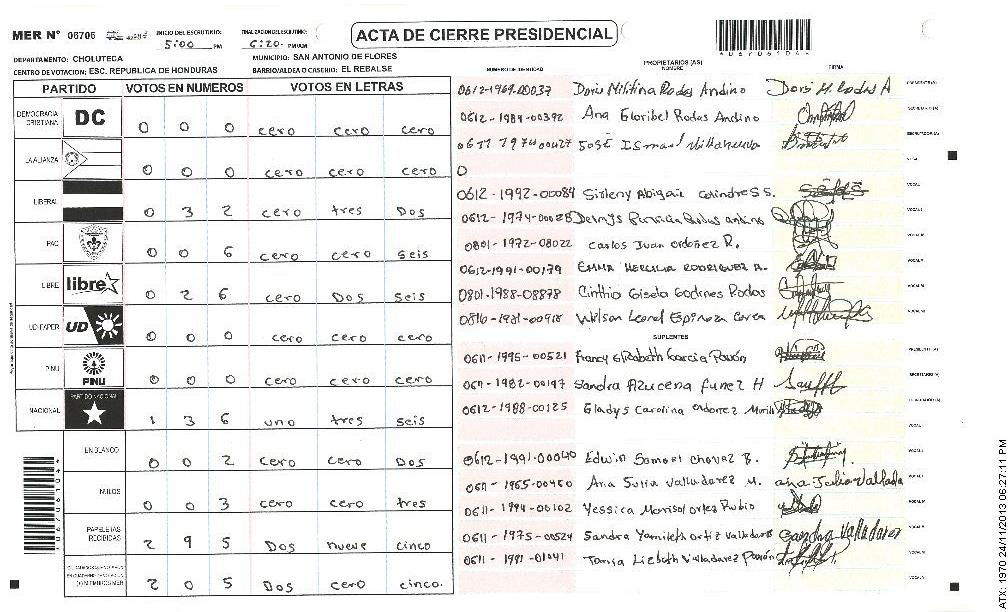 MER N° 06706
INICIO DEL ESCRUTINIO: 5:00 PM
FINALIZACION DEL ESCRUTINIO: 6:20 PM/AM
ACTA DE CIERRE PRESIDENCIAL
DEPARTAMENTO: CHOLUTECA
MUNICIPIO: SAN ANTONIO DE FLORES
CENTRO DE VOTACION: ESC. REPUBLICA DE HONDURAS
BARRIO/ALDEA O CASERIO: EL REBALSE
PARTIDO VOTOS EN NUMEROS VOTOS EN LETRAS
DEMOCRACIA CRISTIANA DC 0 0 0 cero cero cero
LA ALIANZA 0 0 0 cero cero cero
LIBERAL 0 3 2 cero tres Dos
PAC 0 0 6 cero cero seis
LIBRE libre 0 2 6 cero Dos seis
UD-FAPER UD 0 0 0 cero cero cero
PINU PINU 0 0 0 cero cero cero
NACIONAL PARTIDO NACIONAL 1 3 6 uno tres seis
EN BLANCO 0 0 2 cero cero Dos
NULOS 0 0 3 cero cero tres
PAPELETAS RECIBIDAS 2 9 5 Dos nueve cinco
2 0 5 Dos cero cinco.
NUMERO DE IDENTIDAD
PROPIETARIOS (AS)
NOMBRE
FIRMA
0612-1969-00037 Doris Militina Rodas Andino Doris M. Rodas A
PRESIDENTE (A)
0612-1989-00392 Ana Floribel Rodas Andino
SECRETARIO (A)
0611 1974 00027 José Ismael Villanueva
ESCRUTADOR (A)
0
0612-1992-00084 Sirleny Abigail Colindres S.
0612-1974-00028 Delmys Patricia Rodas Andino
0801-1972-08022 Carlos Juan Ordoñez R.
0612-1991-00179 EMMA HERCILIA RODRIGUEZ A.
0801-1988-08878 Cinthia Gisela Godines Rodas
0816-1981-00918 Wilson Leonel Espinoza
SUPLENTES
0611-1995-00521 Francy Elizabeth Garcia Pavón
PRESIDENTE (A)
0611-1982-00197 Sandra Azucena Funez H
SECRETARIO (A)
0612-1988-00125 Gladys Carolina Ordoñez Murillo
0612-1991-00040 Edwin Samael Chavez B.
0611-1965-00450 Ana Julia Valladarez M. ana Julia Vallada
0611-1994-00102 Yessica Marisol ortez Rubio
0611-1975-00524 Sandra Yamileth ortiz Valladares Sandra Valladares
0611-1991-01041 Tania Lizbeth Valladarez Pavón
ATX: 1970 24/11/2013 06:27:11 PM